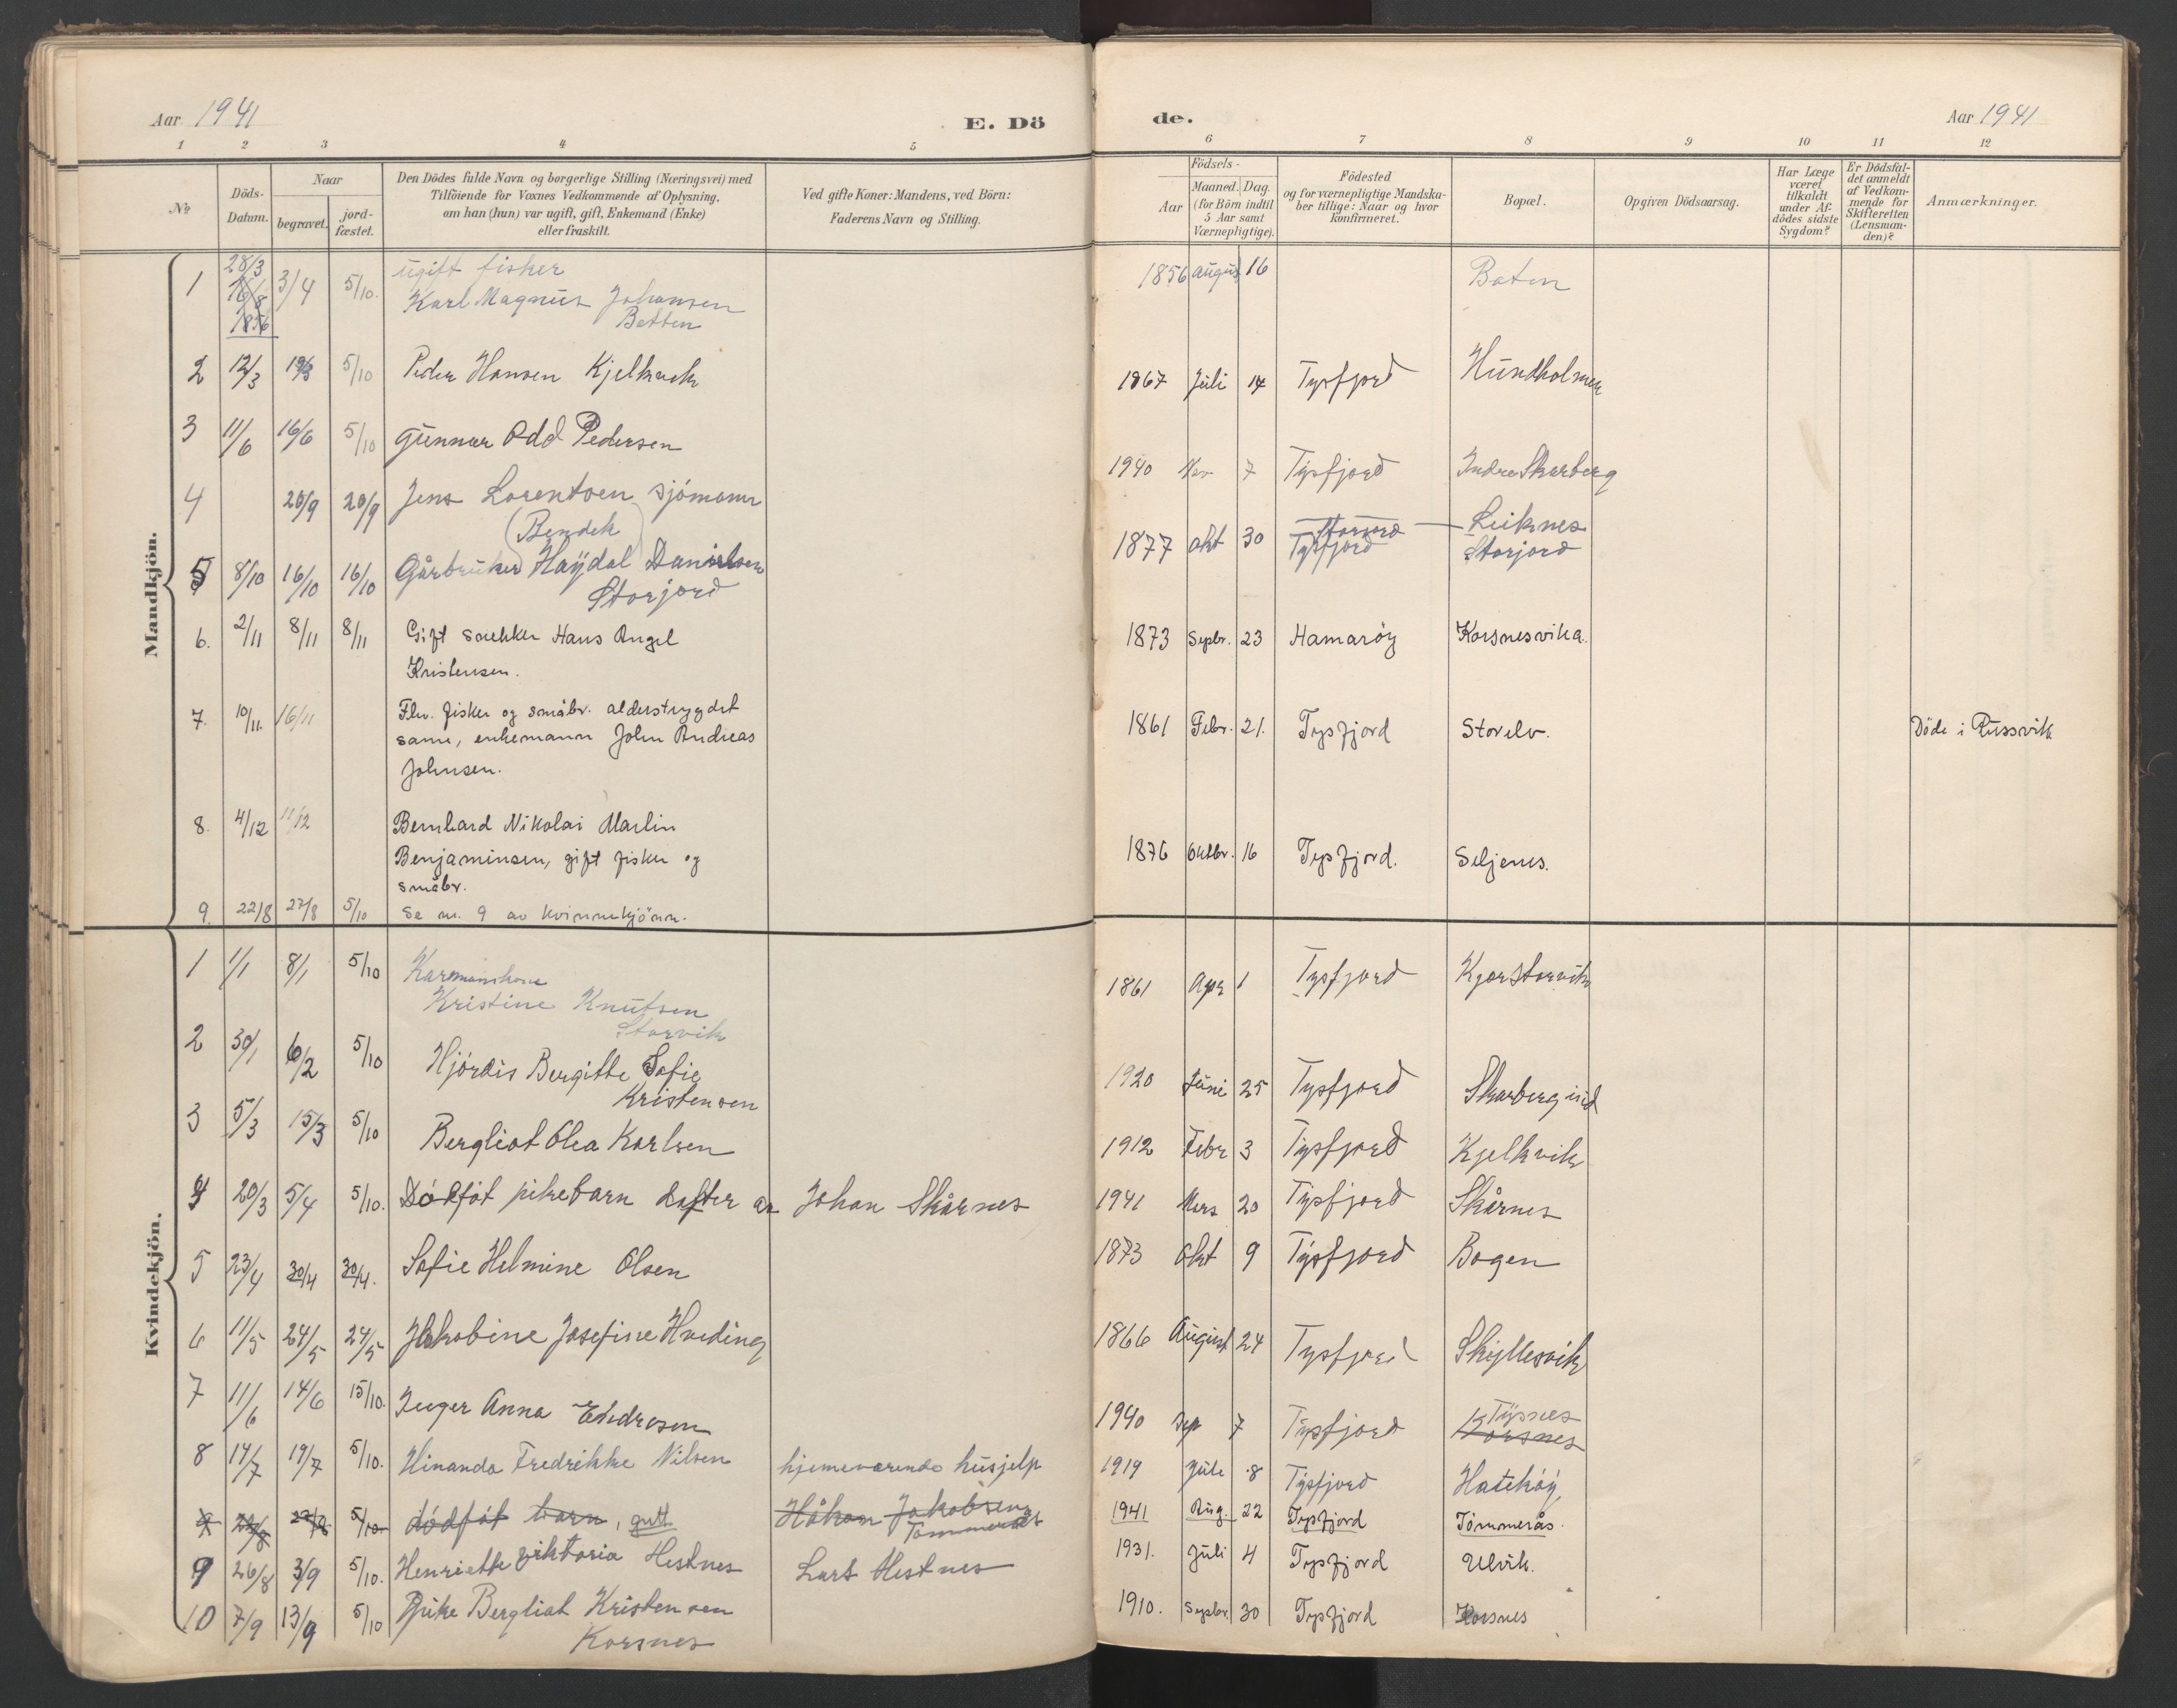 Aar 1941
E. Dö
de.
Aar 1941
1 2 3 4 5 6 7 8 9 10 11 12
№
Döds-
Datum.
Naar
begravet.
jord-
fæstet.
Den Dödes fulde Navn og borgerlige Stilling (Næringsvei) med
Tilföiende for Voxnes Vedkommende af Oplysning,
om han (hun) var ugift, gift, Enkemand (Enke)
eller fraskilt.
Ved gifte Koner: Mandens, ved Börn:
Faderens Navn og Stilling.
Födsels-
Aar
Maaned. Dag.
(for Börn indtil
5 Aar samt
Værnepligtige).
Födested
og for værnepligtige Mandska-
ber tillige: Naar og hvor
konfirmeret.
Bopæl.
Opgiven Dödsaarsag.
Har Læge
været
tilkaldt
under Af-
dödes sidste
Sygdom?
Er Dödsfal-
det anmeldt
af Vedkom-
mende for
Skifteretten
(Lensman-
den)?
Anmærkninger.
Mandkjön.
1 28/3 3/4 5/10. ugift fisker 1856 august 16 Boten
16/8 Karl Magnus Johansen
1856 Botten
2 12/3 19/3 5/10 Peder Hansen Kjelkvik 1867 Juli 14 Tysfjord Hundholmen
3 11/6 16/6 5/10 Gunnar Odd Pedersen 1940 Nov 7 Tysfjord Indre Skarberg
4 20/9 20/9 Jens Lorentsen sjömann
(Bendek) 1877 okt 30 Tysfjord Storjord Leiknes
5 8/10 16/10 16/10 Gårbruker Haÿdal Danielsen Storjord
Storjord
6. 2/11 8/11 8/11 Gift snekker Hans Angel 1873 Sepbr. 23 Hamaröy Korsnesvika.
Kristensen.
7. 10/11. 16/11 Fhv. fisker og småbr. alderstrygdet 1861 Febr. 21. Tysfjord Storelv. Döde i Russvik
same, enkemann John Andreas
Johnsen.
8. 4/12 11/12 Bernhard Nikolai Martin
Benjaminsen, gift fisker og 1876 Oktbr. 16 Tysfjord. Seljenes.
småbr.
9. 22/8 27/8 5/10 Se nr. 9 av kvinnekjönn.
Kvindekjön.
1 1/1 8/1 5/10 Karmanskone 1861 Apr 1 Tysfjord Kjær Storvik
Kristine Knutsen
Storvik
2 30/1 6/2 5/10 Hjördis Bergitte Sofie 1920 Juni 25 Tysfjord Skarberg
Kristensen
3 5/3 15/3 5/10 Bergliot Olea Karlsen 1912 Febr 3 Tysfjord Kjelkvik
4 20/3 5/4 5/10. Dödföt pikebarn datter av Johan Skårnes 1941 Mars 20 Tysfjord Skårnes
5 23/4 30/4 30/4. Sofie Helmine Olsen 1873 Okt 9 Tysfjord Bogen
6 11/5 24/5 24/5 Jakobine Josefine Hveding 1866 August 24 Tysfjord Skyllesvik
7 11/6 14/6 15/10. Inger Anna Endresen 1940 Sep 7 Tysfjord Tysnes
Korsnes
8 14/7 19/7 5/10. Hinanda Fredrikke Nilsen hjemeværende husjelp 1919 Jule 8 Tysfjord Hatehöy
9 22/8 27/8 5/10 dödföt barn, gutt Håkon Jakobsen 1941 Aug. 22 Tysfjord Tömmerås.
Tömmerås
9 26/8 3/9 5/10. Henriette Viktoria Hestnes Lars Hestnes 1931. Juli 4 Tysfjord Ulvik.
10 7/9 13/9 5/10 Pike Bergliot Kristensen 1910. Sepbr. 30 Tysfjord Korsnes
Korsnes